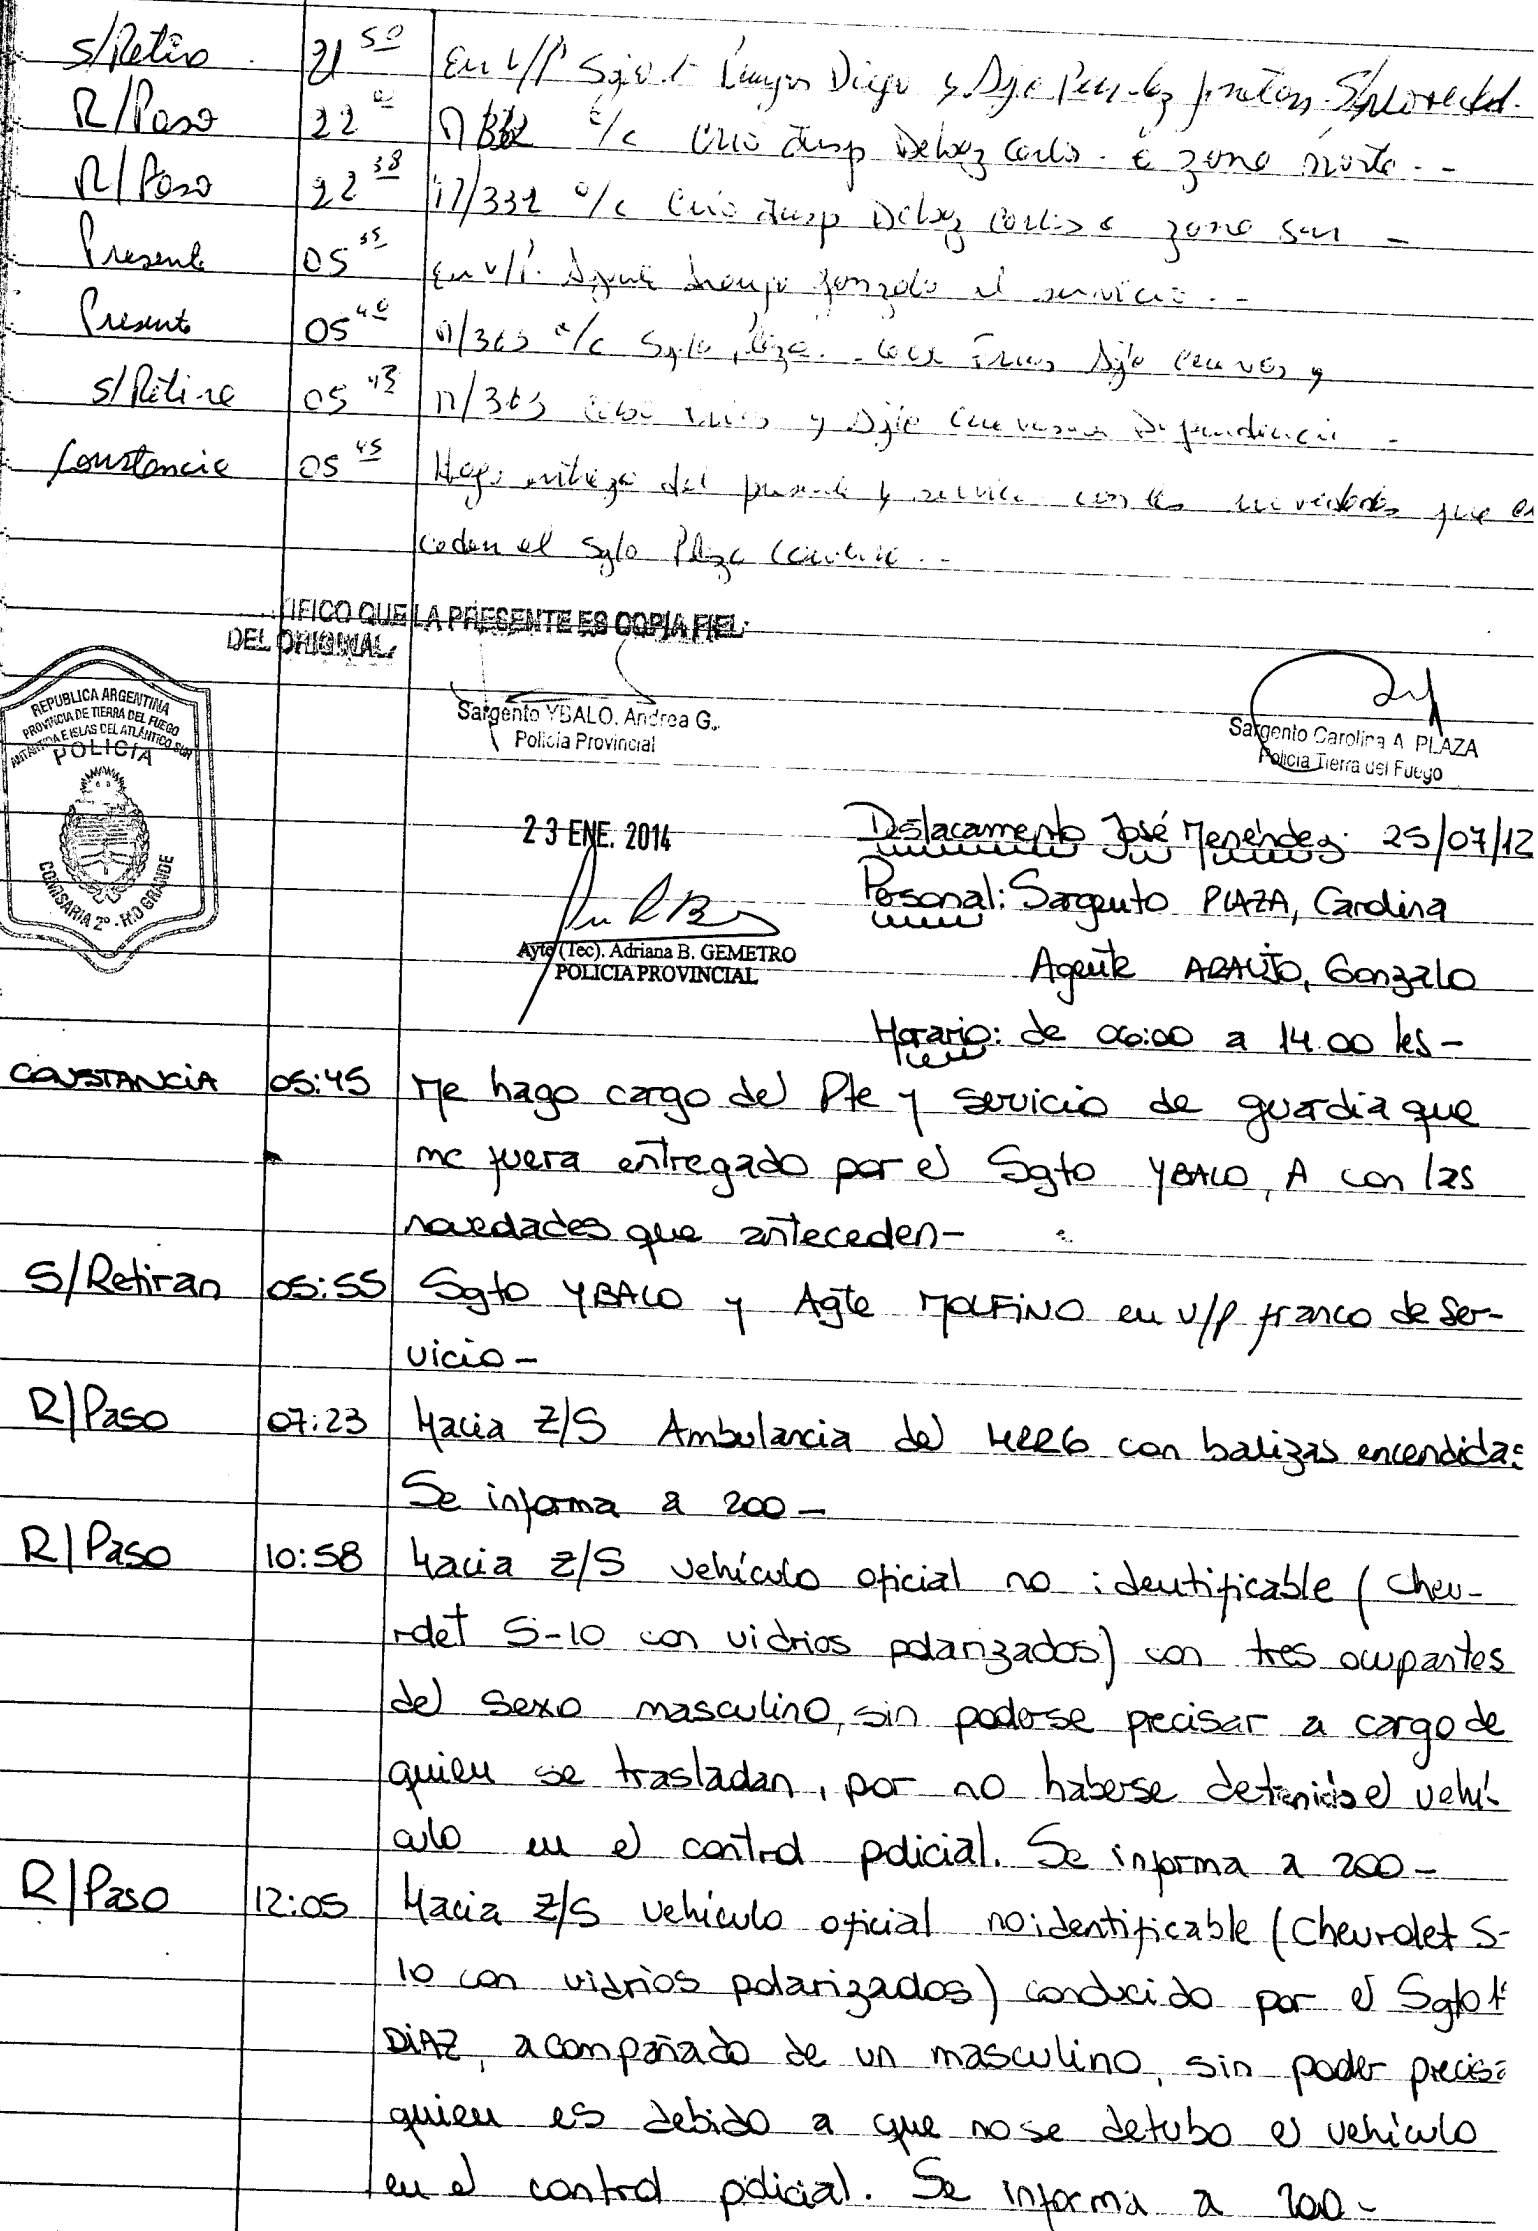 S/Retiro 21 50 En v/p Sgto 1° Diego y Dgo
R/Paso 22 00 a/c Crio Insp Delsaz Carlos a zona norte.-
R/Paso 22 38 M/332 a/c Crio Insp Carlos a zona sur -
Presente 05 35 En v/p. Agente Gonzalo al servicio.-
Presente 05 40 M/363 a/c Sgto Plaza y
S/Retira 05 43 M/363 Cabo y Dependencia -
Constancia 05 45 Hago entrega del presente y servicio con las novedades que an
ceden al Sgto Plaza Carolina.-
IFICO QUE LA PRESENTE ES COPIA FIEL
DEL ORIGINAL.
REPUBLICA ARGENTINA
PROVINCIA DE TIERRA DEL FUEGO
ANTARTIDA E ISLAS DEL ATLÁNTICO SUR
POLICIA
COMISARIA 2° - RIO GRANDE
Sargento YBALO, Andrea G.
Policia Provincial
Sargento Carolina A. PLAZA
Policia Tierra del Fuego
23 ENE. 2014
Ayte (Tec). Adriana B. GEMETRO
POLICIA PROVINCIAL
Destacamento José Menéndez: 25/07/12
Personal: Sargento PLAZA, Carolina
Agente ARAUJO, Gonzalo
Horario: de 06:00 a 14.00 hs-
CONSTANCIA 05:45 Me hago cargo del Pte y servicio de guardia que
me fuera entregado por el Sgto YBALO, A con las
novedades que anteceden-
S/Retiran 05:55 Sgto YBALO y Agte MOLFINO en v/p franco de ser-
vicio-
R/Paso 07:23 Hacia Z/S Ambulancia del HRRG con balizas encendidas
Se informa a 200-
R/Paso 10:58 Hacia Z/S vehículo oficial no identificable (Chev-
rolet S-10 con vidrios polarizados) con tres ocupantes
del sexo masculino, sin poderse precisar a cargo de
quien se trasladan, por no haberse detenido el vehí-
culo en el control policial. Se informa a 200-
R/Paso 12:05 Hacia Z/S vehículo oficial no identificable (Chevrolet S-
10 con vidrios polarizados) conducido por el Sgto 1°
DIAZ, acompañado de un masculino, sin poder precisa
quien es debido a que no se detubo el vehículo
en el control policial. Se informa a 200-